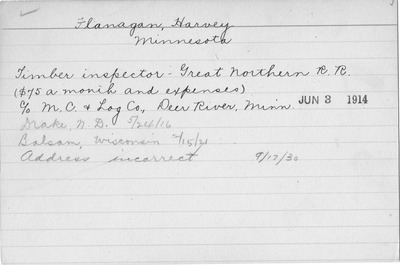 Flanagan, Harvey
Minnesota
Timber inspector - Great Northern R. R.
($75 a month and expenses)
c/o M. C. & Log Co., Deer River, Minn. JUN 3 1914
Drake, N. D. 5/24/16
Balsam, Wisconsin 2/15/21
Address incorrect 9/17/30